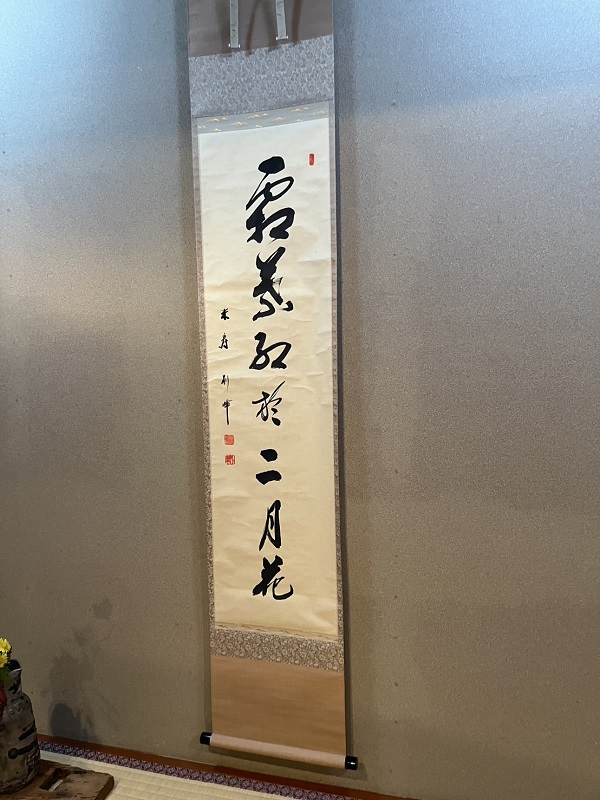 霜葉紅於二月花
米寿